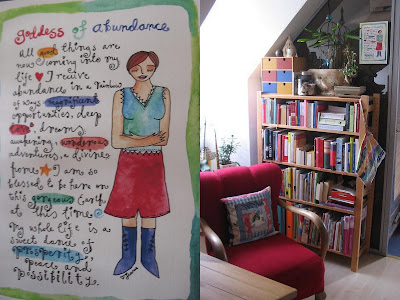 goddess of abundance
All good things are
now coming into my
life I receive
abundance in a
of ways magnificent
opportunities, deep
awakening wondrous
adventures, a divine
I am so
blessed to be here on
this gorgeous Earth
at this time
My whole life is a
sweet dance of
prosperity
peace and
possibility.